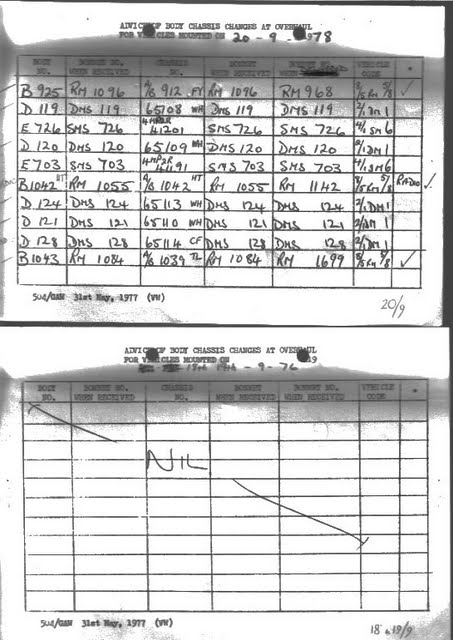 ADVICE OF BODY CHASSIS CHANGES AT OVERHAUL
FOR VEHICLES MOUNTED ON 20-9-1978
BODY NO. BONNET NO. WHEN RECEIVED CHASSIS NO. BONNET WHEN RECEIVED BONNET NO. VEHICLE CODE *
B925 RM 1096 A/S 912 FV RM 1096 RM 968 8/5RM 5/8 ✓
D 119 DMS 119 65108 WH DMS 119 DMS 119 2/1DM 1
E 726 SMS 726 4MP2R 41201 SMS 726 SMS 726 4/1SM 6
D 120 DMS 120 65109 WH DMS 120 DMS 120 2/1DM 1
E703 SMS 703 4MP2R 41191 SMS 703 SMS 703 4/1SM 6
B1042 HT RM 1055 A/S 1042 HT RM 1055 RM 1142 8/5RM 5/8 ✓
D 124 DMS 124 65113 WH DMS 124 DMS 124 2/1DM 1
D 121 DMS 121 65110 WH DMS 121 DMS 121 2/1DM 1
D 128 DMS 128 65114 CF DMS 128 DMS 128 2/1DM 1
B1043 RM 1084 A/S 1039 TL RM 1084 RM 1699 8/5RM 5/8 ✓
504/GAN 31st May, 1977 (VW)
20/9
ADVICE OF BODY CHASSIS CHANGES AT OVERHAUL
FOR VEHICLES MOUNTED ON 19
18th 19th - 9 - 76
BODY NO. BONNET NO. WHEN RECEIVED CHASSIS NO. BONNET WHEN RECEIVED BONNET NO. WHEN RECEIVED VEHICLE CODE *
NIL
504/GAN 31st May, 1977 (VW)
18 & 19/9